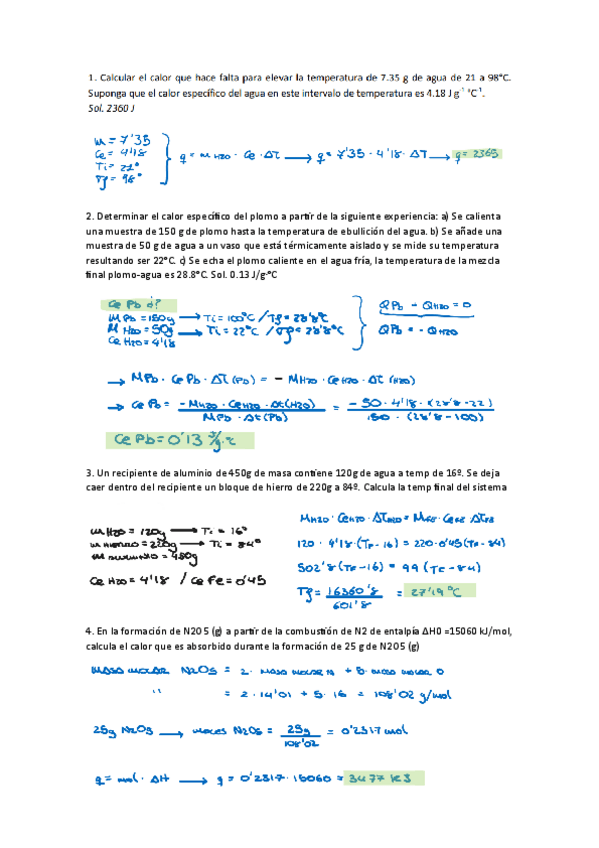 1. Calcular el calor que hace falta para elevar la temperatura de 7.35 g de agua de 21 a 98°C.
Suponga que el calor específico del agua en este intervalo de temperatura es 4.18 J g⁻¹ °C⁻¹.
Sol. 2360 J
m = 7'35
Ce = 4'18
Ti = 21°
Tf = 98°
q = m H2O · Ce · ΔT → q = 7'35 · 4'18 · ΔT → q = 2365
2. Determinar el calor específico del plomo a partir de la siguiente experiencia: a) Se calienta
una muestra de 150 g de plomo hasta la temperatura de ebullición del agua. b) Se añade una
muestra de 50 g de agua a un vaso que está térmicamente aislado y se mide su temperatura
resultando ser 22°C. c) Se echa el plomo caliente en el agua fría, la temperatura de la mezcla
final plomo-agua es 28.8°C. Sol. 0.13 J/g·°C
Ce Pb ¿?
M Pb = 150g → Ti = 100°C / Tf = 28'8°C
M H2O = 50g → Ti = 22°C / Tf = 28'8°C
Ce H2O = 4'18
QPb - QH2O = 0
QPb = - QH2O
→ MPb · CePb · ΔT (Pb) = - MH2O · CeH2O · ΔT (H2O)
→ Ce Pb = -MH2O · CeH2O · Δt(H2O) / MPb · Δt(Pb) = -50 · 4'18 · (28'8-22) / 150 · (28'8-100)
Ce Pb = 0'13 J/g·°C
3. Un recipiente de aluminio de 450g de masa contiene 120g de agua a temp de 16º. Se deja
caer dentro del recipiente un bloque de hierro de 220g a 84º. Calcula la temp final del sistema
m H2O = 120g → Ti = 16°
m hierro = 220g → Ti = 84°
m aluminio = 450g
Ce H2O = 4'18 / Ce Fe = 0'45
MH2O · CeH2O · ΔTH2O = MFe · CeFe · ΔTFe
120 · 4'18 · (Tf - 16) = 220 · 0'45 (Tf - 84)
502'8 (Tf - 16) = 99 (Tf - 84)
Tf = 16360'8 / 601'8 = 27'19 °C
4. En la formación de N2O5 (g) a partir de la combustión de N2 de entalpía ΔH0 =15060 kJ/mol,
calcula el calor que es absorbido durante la formación de 25 g de N2O5 (g)
MASA MOLAR N2O5 = 2 · MASA MOLAR N + 5 · MASA MOLAR O
" = 2 · 14'01 + 5 · 16 = 108'02 g/mol
25g N2O5 → moles N2O5 = 25g / 108'02 = 0'2317 mol
q = mol · ΔH → q = 0'2317 · 15060 = 3477 KJ